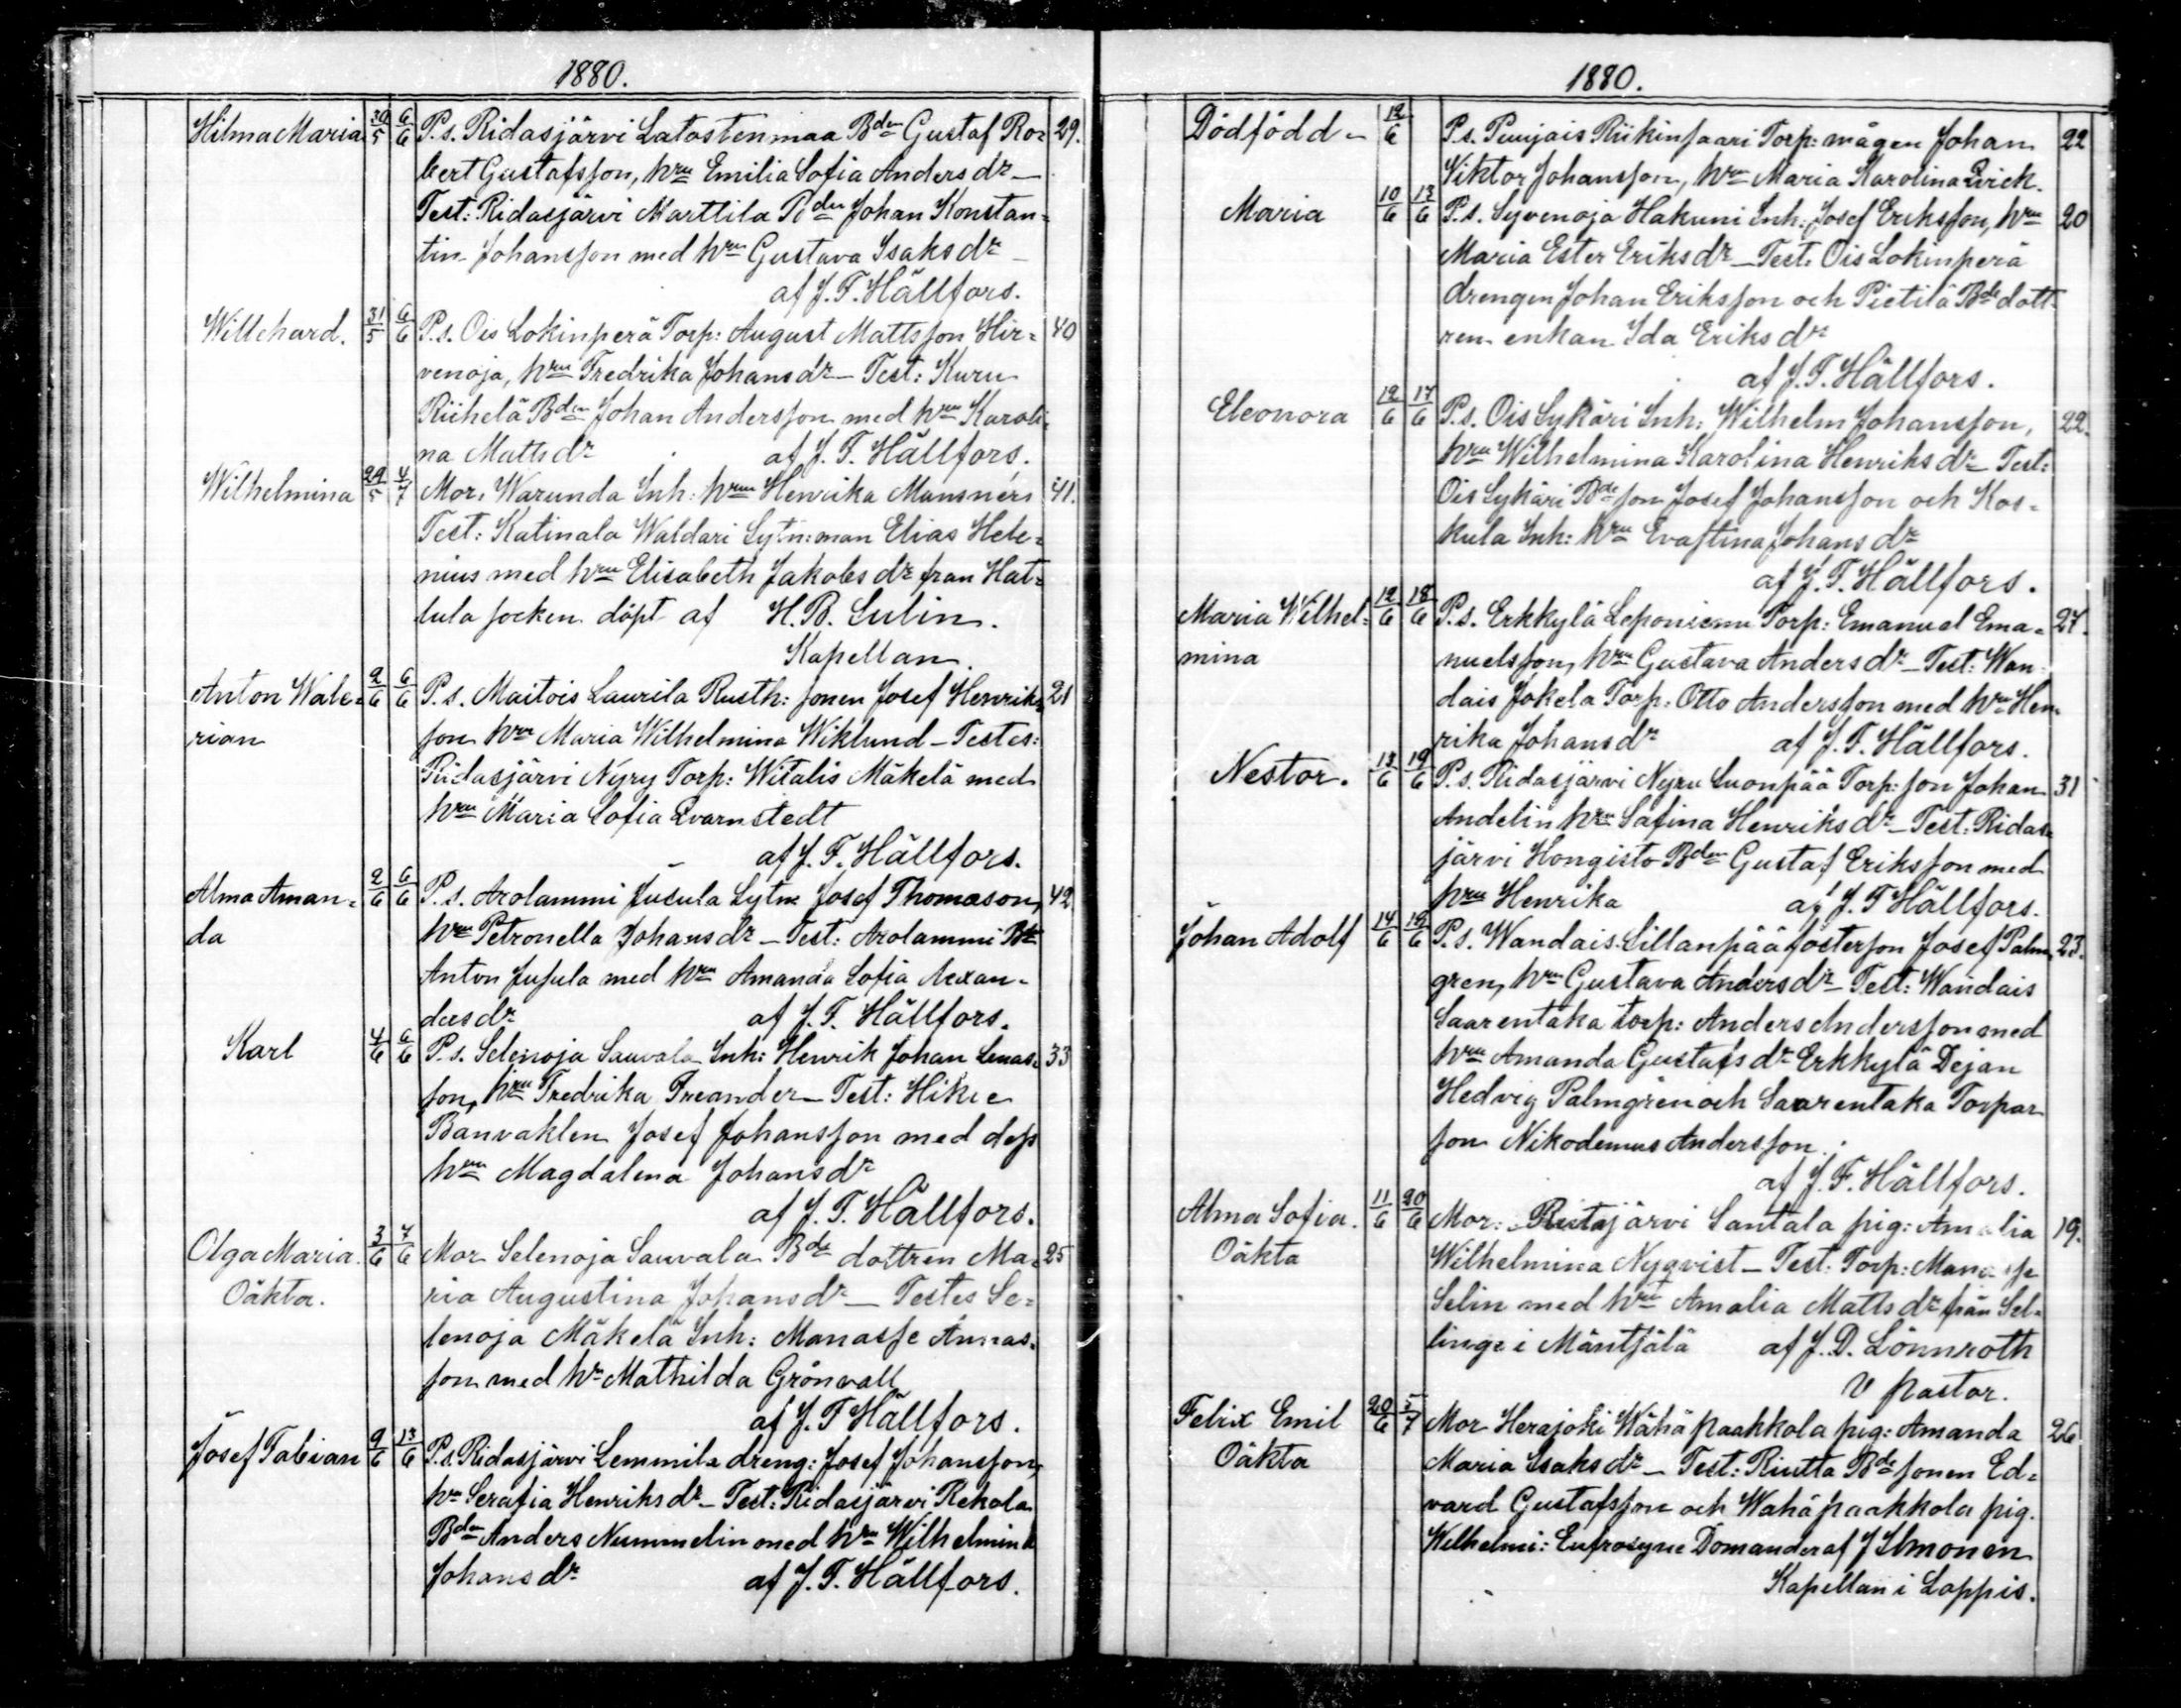 1880.
Hilma Maria 30/5 6/6 P.s. Ridasjärvi Latostenmaa Bden Gustaf Ro= 29.
bert Gustafsson, hru Emilia Sofia Andersdr –
Test: Ridasjärvi Marttila Bden Johan Konstan=
tin Johansson med hru Gustava Isaksdr –
af J. F. Hällfors.
Willehard. 31/5 6/6 P.s. Ois Lokinperä Torp: August Mattsson Hir= 40
venoja, hru Fredrika Johansdr – Test: Kuru
Riihelä Bden Johan Andersson med hru Karoli=
na Mattsdr af J. F. Hällfors.
Wilhelmina 29/5 4/7 Mor. Warunda Inh: hru Henrika Mansnérs 41.
Test: Katinala Waldari Sytn:man Elias Hele=
nius med hru Elisabeth Jakobsdr fran Hat=
tula socken döpt af H. B. Sulin.
Kapellan.
Anton Wale= 2/6 6/6 P.s. Maitois Laurila Rusth: sonen Josef Henriks= 21
rian son hru Maria Wilhelmina Wiklund – Testes:
Ridasjärvi Nyry Torp: Witalis Mäkelä med
hru Maria Sofia Qvarnstedt
af J. F. Hällfors.
Alma Aman= 2/6 6/6 P.s. Arolammi Jusula Sytn Josef Thomasson, 42
da hru Petronella Johansdr – Test: Arolammi Bde
Anton Jusula med hru Amanda Sofia Alexan=
dersdr af J. F. Hällfors.
Karl 4/6 6/6 P.s. Selenoja Sauvala Inh: Henrik Johan Lenas= 33
son, hru Fredrika Freander – Test: Hikie
Banvakten Josef Johansson med dess
hru Magdalena Johansdr
af J. F. Hällfors.
Olga Maria. 3/6 7/6 Mor Selenoja Sauvala Bde dottren Ma= 25
Oäkta. ria Augustina Johansdr – Testes Se=
lenoja Mäkelä Inh: Manasse Annas=
son med hr Mathilda Grönvall
af J. F Hällfors.
Josef Fabian 9/6 13/6 P.s. Ridasjärvi Lemmilä dreng: Josef Johansson,
hr Serafia Henriksdr – Test: Ridasjärvi Rekola
Bden Anders Nummelin med hru Wilhelmina
Johansdr af J. F. Hällfors.
1880.
Dödfödd – 12/6 P.s. Puujais Riikinsaari Torp: mågen Johan 22
Viktor Johansson, hru Maria Karolina Qvick.
Maria 10/6 13/6 P.s. Syvenoja Hakuni Inh: Josef Eriksson, hru 20
Maria Ester Eriksdr – Test. Ois Lokinperä
drengen Johan Eriksson och Pietilä Bde dott=
ren enkan Ida Eriksdr
af J. F. Hällfors.
Eleonora 12/6 17/6 P.s. Ois Sykäri Inh: Wilhelm Johansson, 22.
hru Wilhelmina Karolina Henriksdr – Test:
Ois Sykäri Bde son Josef Johansson och Kos=
kula Inh: hru Evastina Johansdr
af J. F. Hällfors.
Maria Wilhel= 12/6 18/6 P.s. Erkkylä Leponiemi Torp: Emanuel Ema= 27.
mina nuelsson, hru Gustava Andersdr – Test: Wan=
dais Jokela Torp: Otto Andersson med hru Hen=
rika Johansdr af J. F. Hällfors.
Nestor. 13/6 19/6 P.s. Ridasjärvi Nyru Luonpää Torp: son Johan 31
Andelin hru Safina Henriksdr – Test: Ridas=
järvi Hongisto Bden Gustaf Eriksson med
hru Henrika af J. F Hällfors.
Johan Adolf 14/6 19/6 P.s. Wandais Sillanpää fosterson Josef Palm= 23.
gren, hru Gustava Andersdr – Test: Wandais
Saarentaka Torp: Anders Andersson med
hru Amanda Gustafsdr Erkkylä Dejan
Hedvig Palmgren och Saarentaka Torpar
son Nikodemus Andersson.
af J. F. Hällfors.
Alma Sofia. 11/6 20/6 Mor: Ridasjärvi Santala pig: Amalia 19.
Oäkta Wilhelmina Nyqvist – Test: Torp: Manasse
Selin med hru Amalia Mattsdr från Sel=
linge i Mäntsälä af J. D. Lönnroth
V pastor.
Felix Emil 20/6 5/7 Mor Herajoki Wähä paakkola pig: Amanda 26
Oäkta Maria Isaksdr – Test: Riutta Bde sonen Ed=
vard Gustafsson och Wähäpaakkola pig.
Wilhelmi: Eufrosyne Domander af J Ilmonen
Kapellan i Loppis.